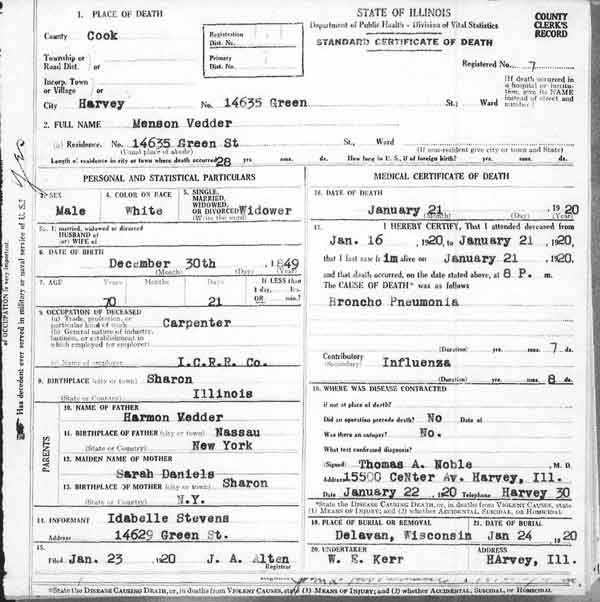 1. PLACE OF DEATH
STATE OF ILLINOIS
Department of Public Health - Division of Vital Statistics
STANDARD CERTIFICATE OF DEATH
COUNTY CLERK'S RECORD
County Cook
Registration Dist. No.
Township or Road Dist. or
Primary Dist. No.
Registered No. 7
Incorp. Town or Village or
(If death occurred in a hospital or institution, give its NAME instead of street and number)
City Harvey No. 14635 Green St.; Ward
2. FULL NAME Menson Vedder
(a) Residence. No. 14635 Green St St., Ward
(Usual place of abode) (If non-resident give city or town and State)
Length of residence in city or town where death occurred 28 yrs. mos. ds. How long in U. S., if of foreign birth? yrs. mos. ds.
PERSONAL AND STATISTICAL PARTICULARS
3. SEX Male
4. COLOR OR RACE White
5. SINGLE, MARRIED, WIDOWED, OR DIVORCED Widower
(Write the word)
5a. If married, widowed or divorced
HUSBAND of
(or) WIFE of
6. DATE OF BIRTH
December 30th 1849
(Month) (Day) (Year)
7. AGE Years Months Days If LESS than 1 day, hrs. OR min.?
70 21
8. OCCUPATION OF DECEASED
(a) Trade, profession, or particular kind of work Carpenter
(b) General nature of industry, business, or establishment in which employed (or employer)
(c) Name of employer I.C.R.R. Co.
9. BIRTHPLACE (city or town) Sharon
(State or Country) Illinois
PARENTS
10. NAME OF FATHER
Harmon Vedder
11. BIRTHPLACE OF FATHER (city or town) Nassau
(State or Country) New York
12. MAIDEN NAME OF MOTHER
Sarah Daniels
13. BIRTHPLACE OF MOTHER Sharon
(State or Country) N.Y.
14. INFORMANT Idabelle Stevens
Address 14629 Green St.
15.
Filed Jan. 23 1920 J. A. Alten
MEDICAL CERTIFICATE OF DEATH
16. DATE OF DEATH
January 21 1920
(Month) (Day) (Year)
17. I HEREBY CERTIFY, That I attended deceased from
Jan. 16 1920, to January 21 1920,
that I last saw him alive on January 21 1920.
and that death occurred, on the date stated above, at 8 P. m.
The CAUSE OF DEATH* was as follows
Broncho Pneumonia
(Duration) yrs. mos. 7 ds.
Contributory (Secondary) Influenza
(Duration) yrs. mos. 8 ds.
18. WHERE WAS DISEASE CONTRACTED
if not at place of death?
Did an operation precede death? No Date of
Was there an autopsy? No.
What test confirmed diagnosis?
(Signed) Thomas A. Noble, M. D.
Address 15500 CeNter Av. Harvey, Ill.
Date January 22 1920 Telephone Harvey 30
*State the DISEASE CAUSING DEATH, or, in deaths from VIOLENT CAUSES, state (1) MEANS OF INJURY; and (2) whether ACCIDENTAL, SUICIDAL, OR HOMICIDAL
19. PLACE OF BURIAL OR REMOVAL Delavan, Wisconsin
21. DATE OF BURIAL Jan 24 1920
20. UNDERTAKER W. E. Kerr
ADDRESS HArvey, Ill.
*State the DISEASE CAUSING DEATH, or, in deaths from VIOLENT CAUSES, state (1) MEANS OF INJURY; and (2) whether ACCIDENTAL, SUICIDAL, or HOMICIDAL.
Has decedent ever served in military or naval service of U. S.? Yes
of OCCUPATION is very important.